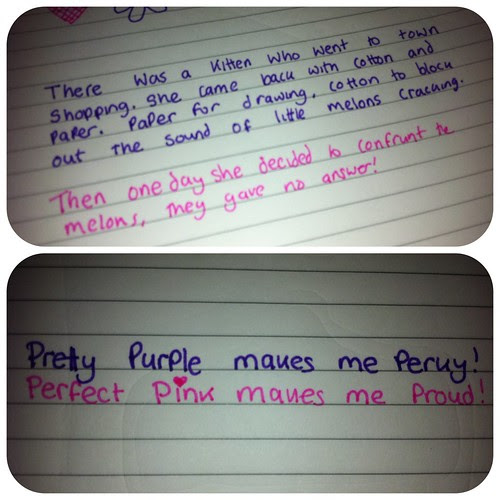 There was a kitten who went to town
shopping. She came back with cotton and
paper. Paper for drawing, cotton to block
out the sound of little melons cracking.
Then one day she decided to confrunt the
melons, they gave no answer!
Pretty Purple makes me Perky!
Perfect Pink makes me Proud!